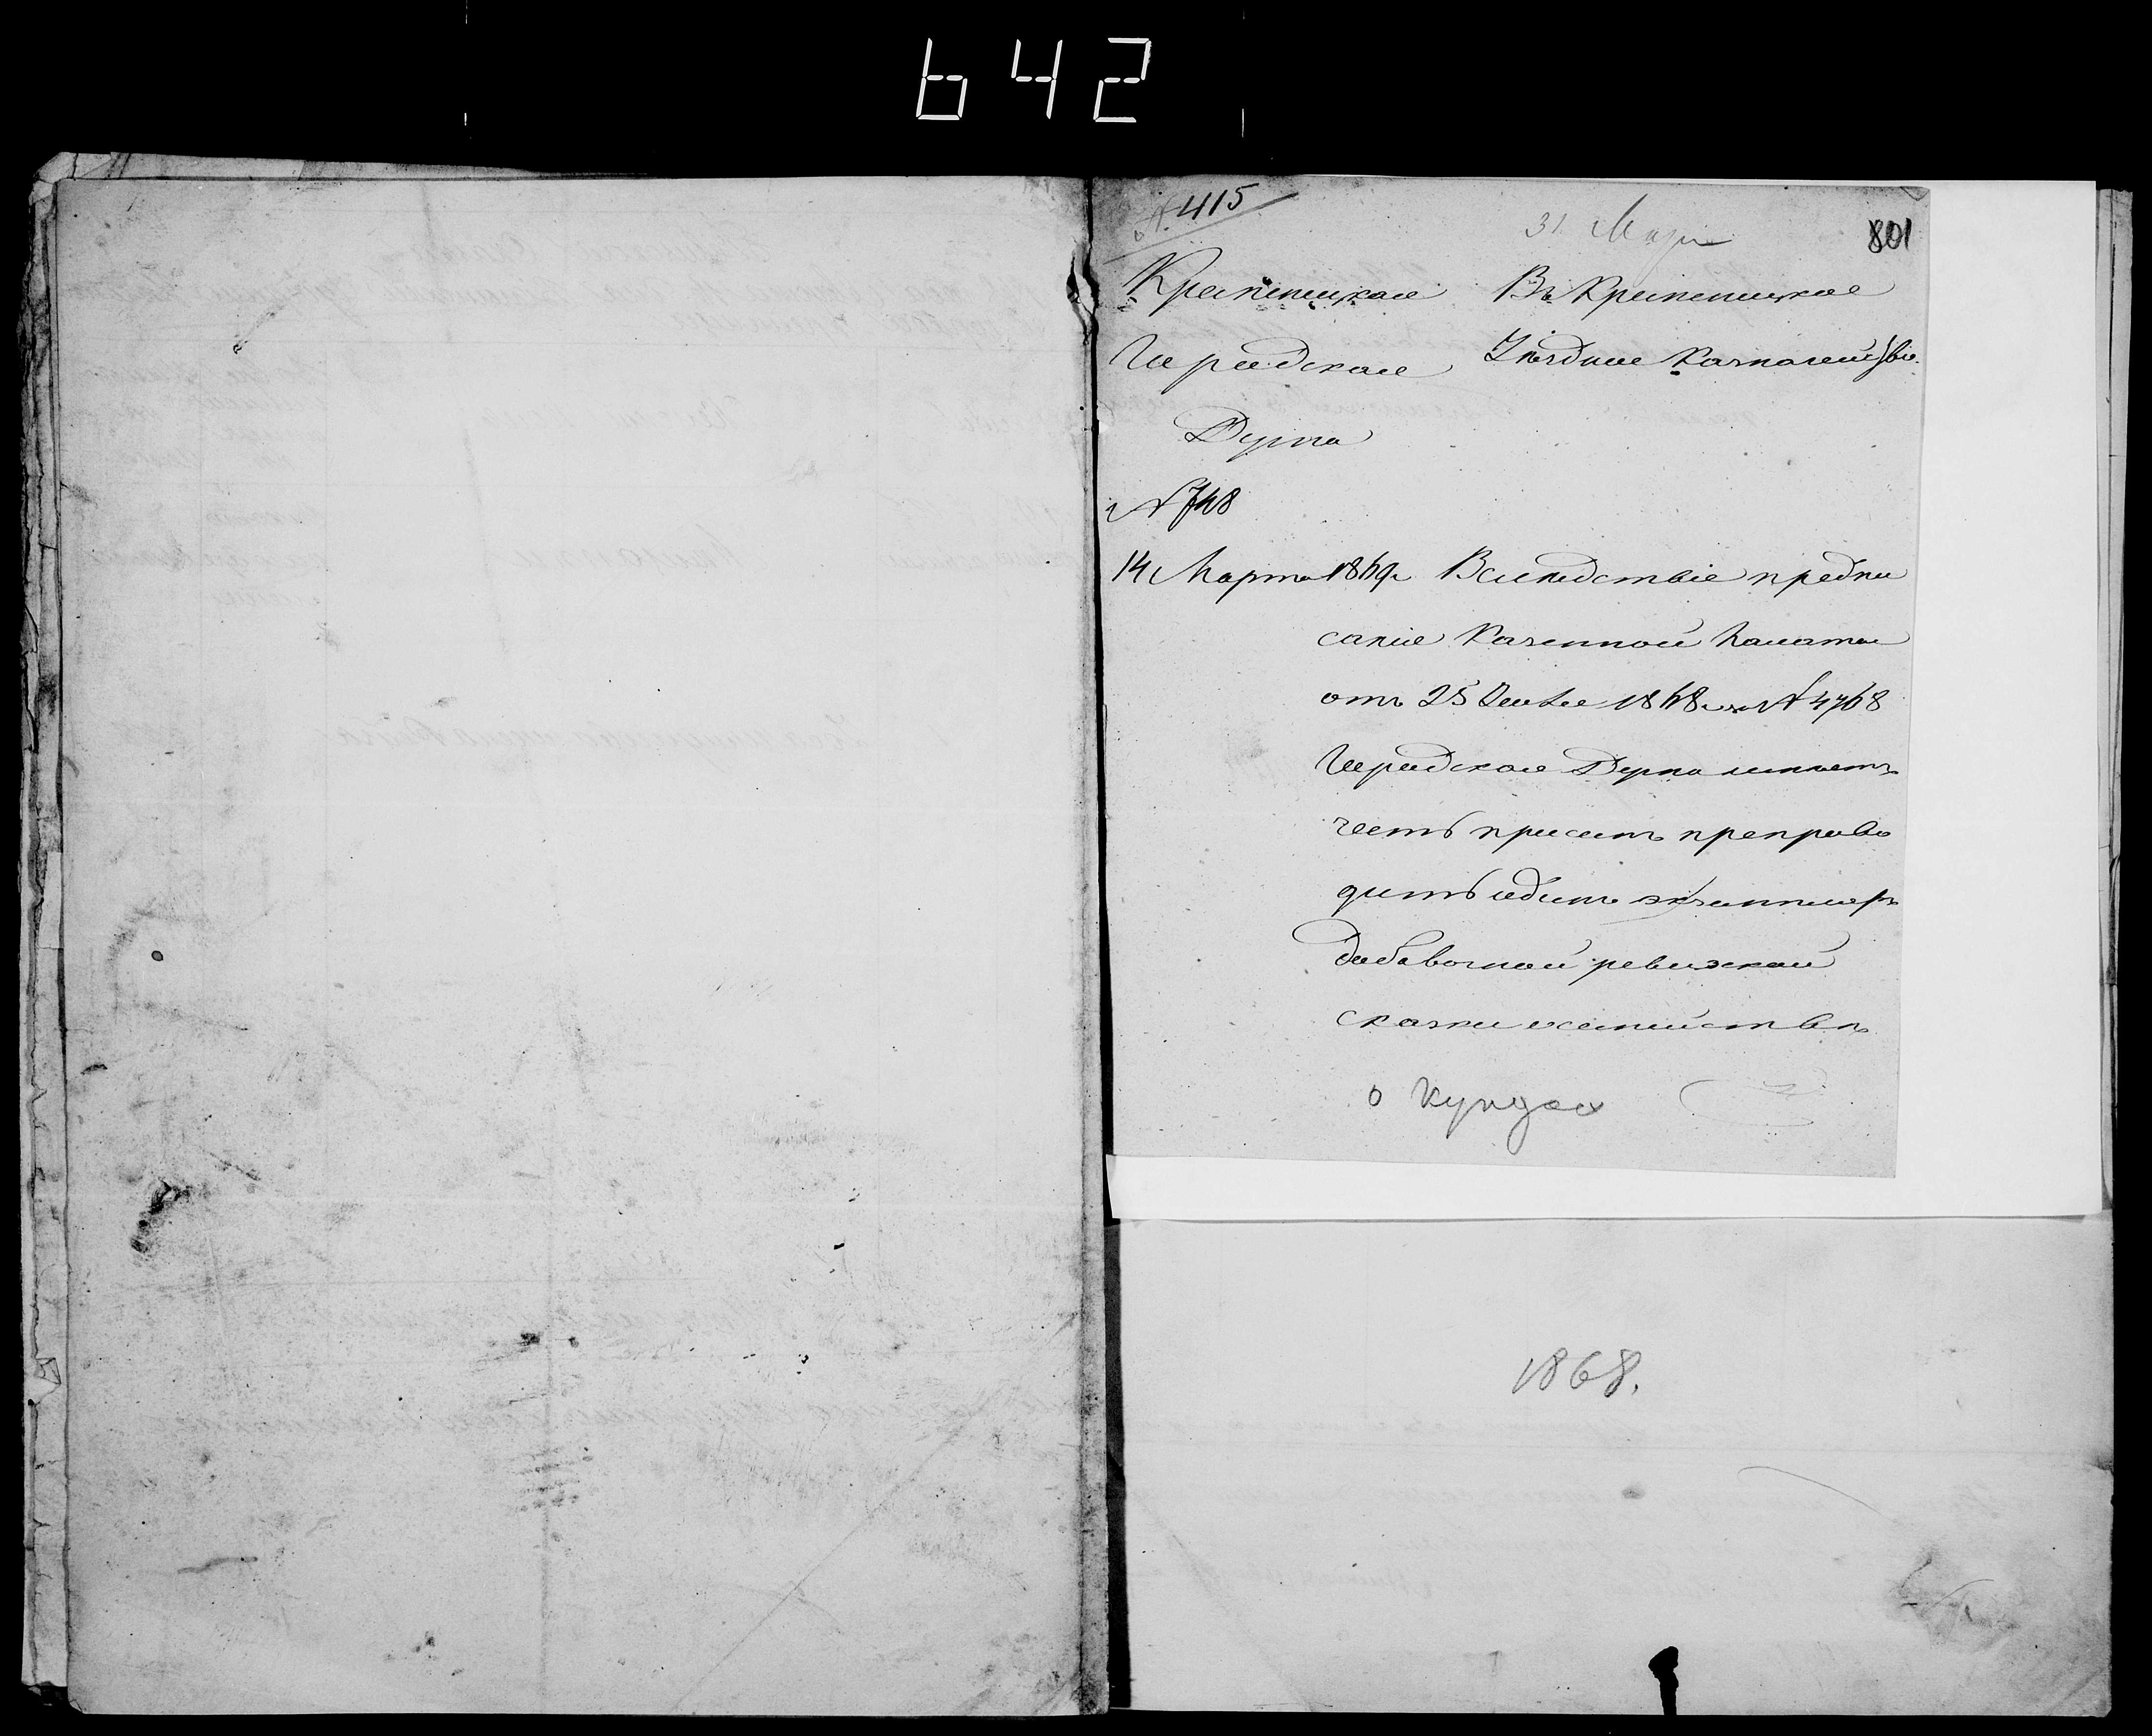 642
№ 415
31 Мар
801
Кременецкая
Городская
Дума
№ 748
14 Марта 1869 г.
Въ Кременецкое
Уѣздное Казначейство.
Вслѣдствіе предпи
санія Казенной Палаты
отъ 25 1868 г. за № 4768
Городская Дума имѣетъ
честь просить препрово
дить одинъ экземпляръ
добавочной ревизской
сказки о семействѣ
о купцах
1868.